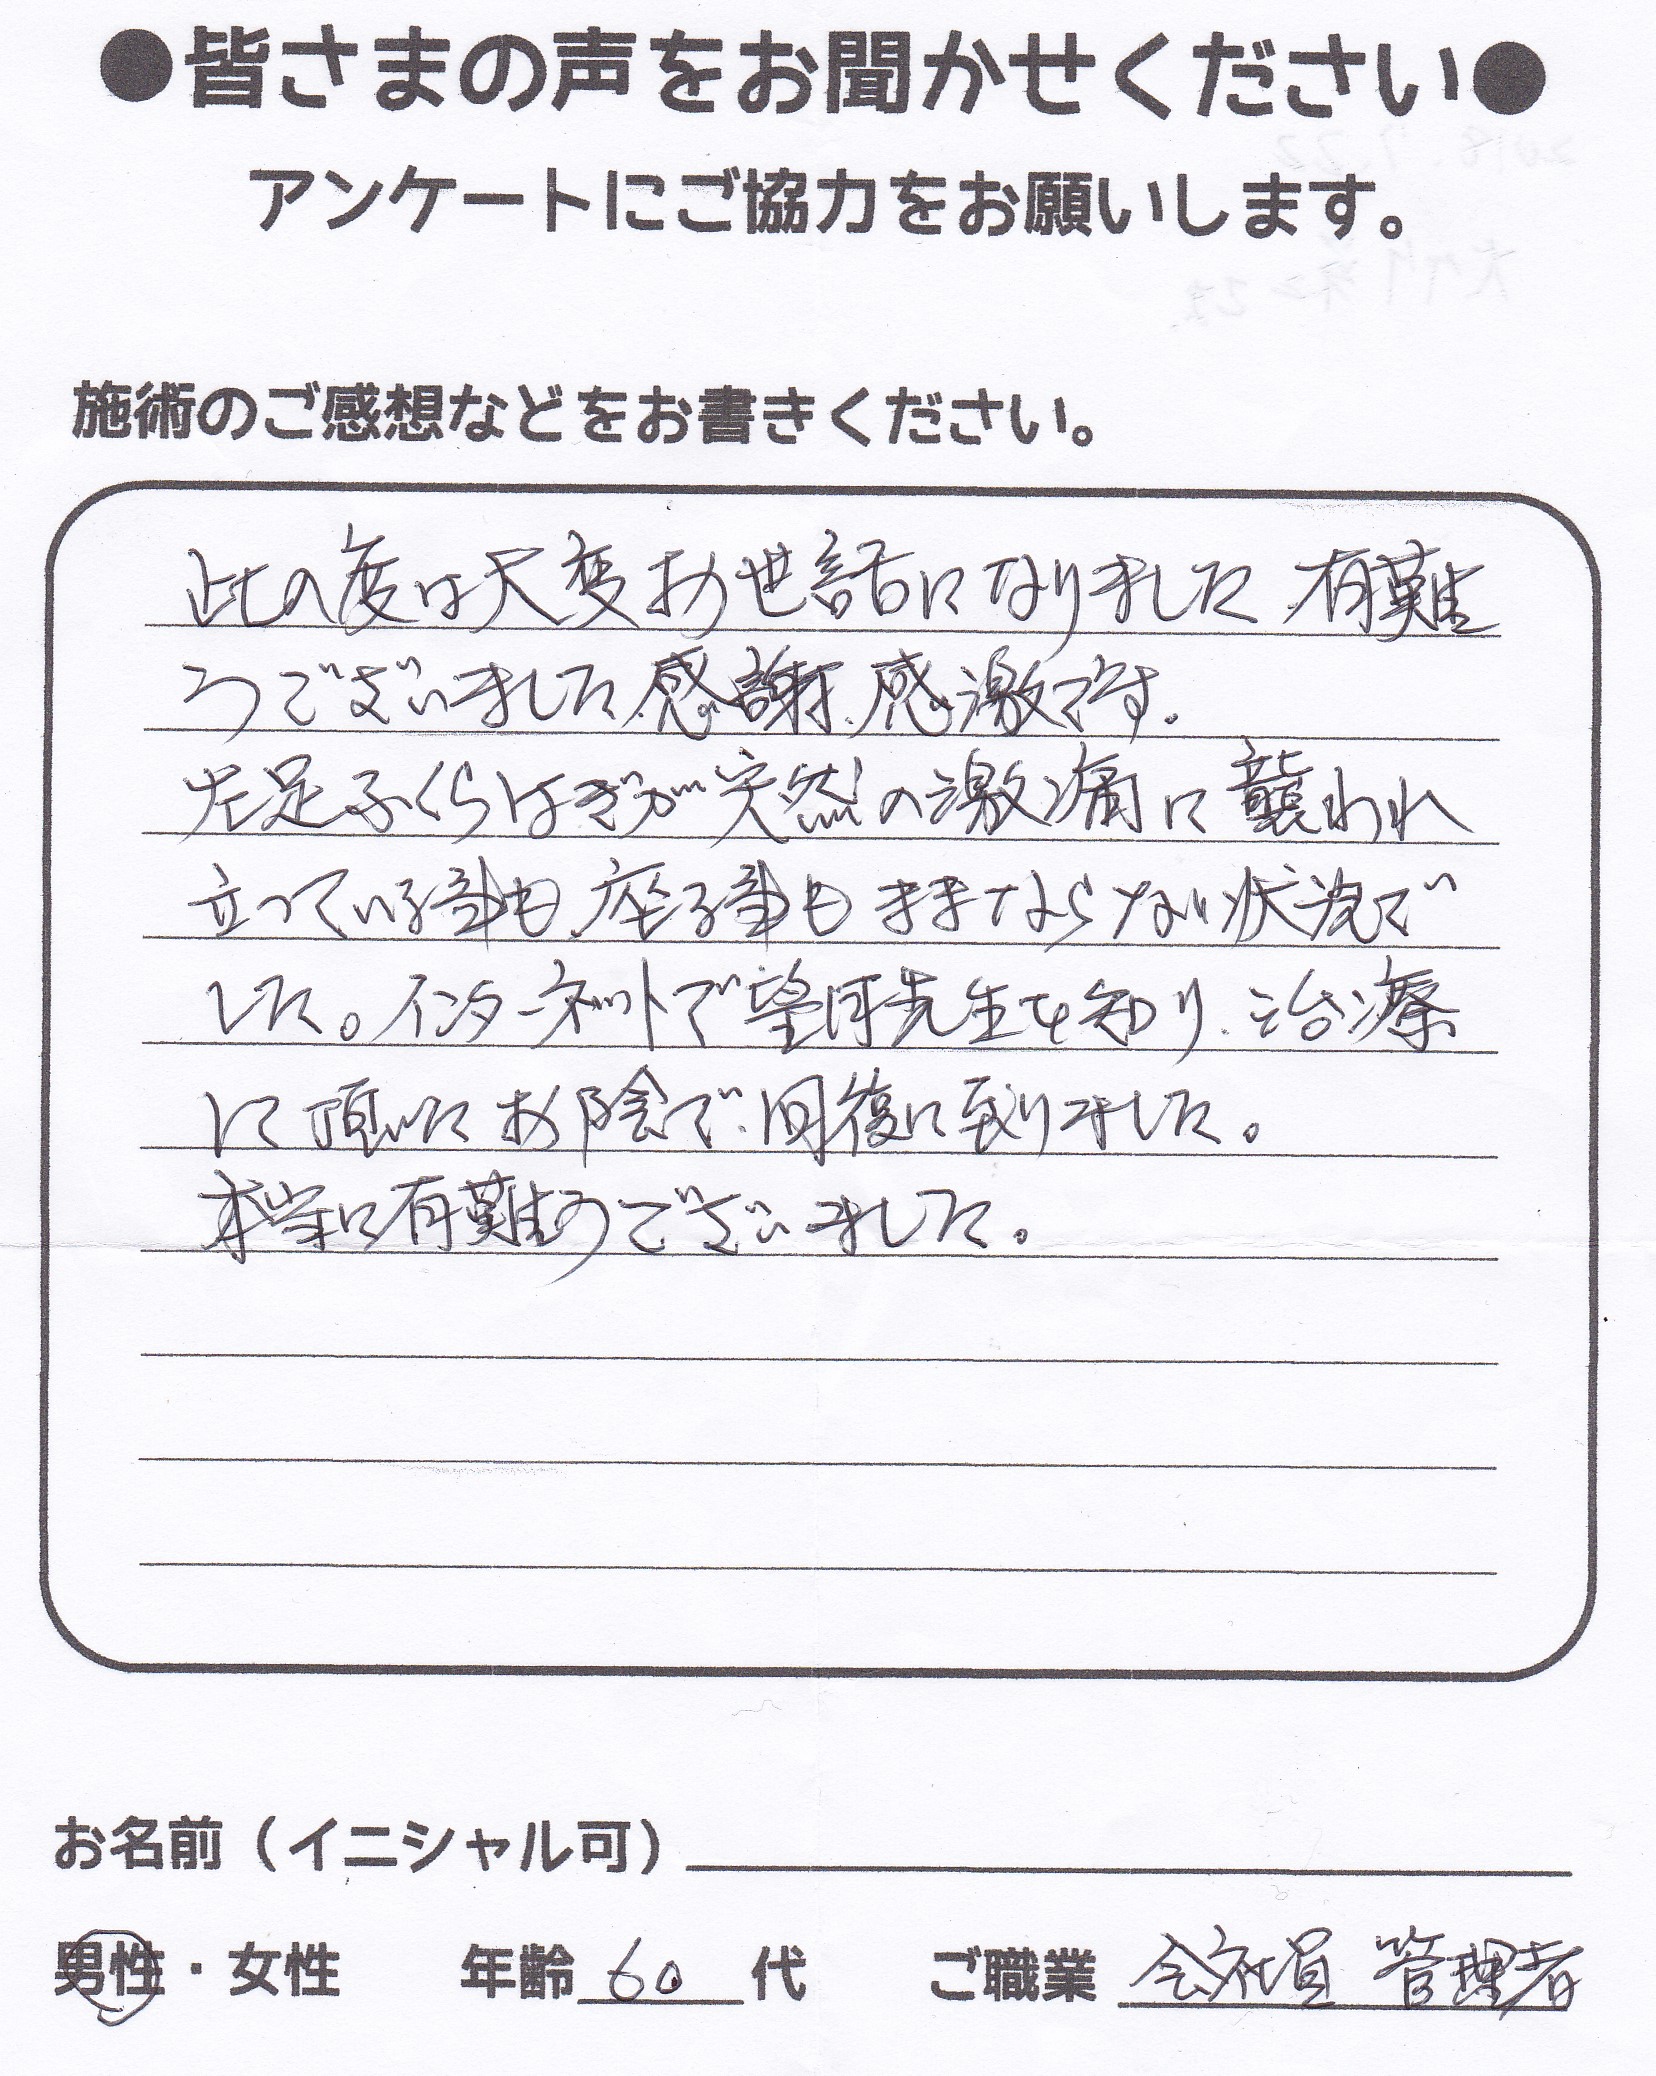 ●皆さまの声をお聞かせください●
アンケートにご協力をお願いします。
施術のご感想などをお書きください。
此の度は大変お世話になりました 有難
うございました、感謝、感激です。
左足ふくらはぎが突然の激痛に襲われ
立っている事も、座る事もままならない状況で
した。インターネットで望月先生を知り、治療
に頂いたお陰で、回復に到りました。
本当に有難うございました。
お名前（イニシャル可）
男性・女性 年齢 60 代 ご職業 会社員 管理者